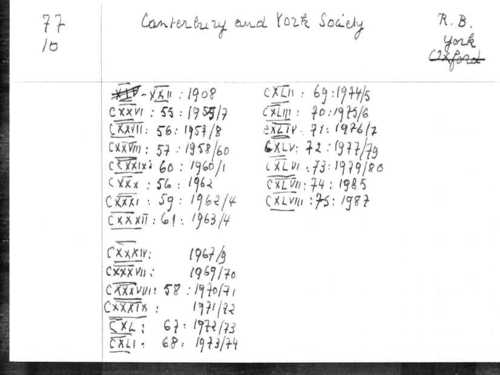 77
10
Canterbury and York Society
R. B.
York
Oxford
XIV-XXII: 1908
CXXVI: 55: 1955/7
CXXVII: 56: 1957/8
CXXVIII: 57: 1958/60
CXXIX: 60: 1960/1
CXXX: 56: 1962
CXXXI: 59: 1962/4
CXXXII: 61: 1963/4
CXXXIV: 1967/9
CXXXVII: 1969/70
CXXXVIII: 58: 1970/71
CXXXIX: 1971/72
CXL: 67: 1972/73
CXLI: 68: 1973/74
CXLII: 69: 1974/5
CXLIII: 70: 1975/6
CXLIV: 71: 1976/7
CXLV: 72: 1977/79
CXLVI: 73: 1979/80
CXLVII: 74: 1985
CXLVIII: 75: 1987